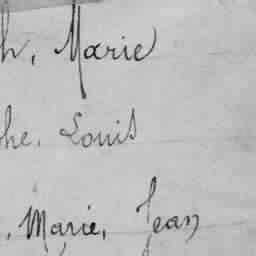 h, Marie
he, Louis
, Marie, Jean